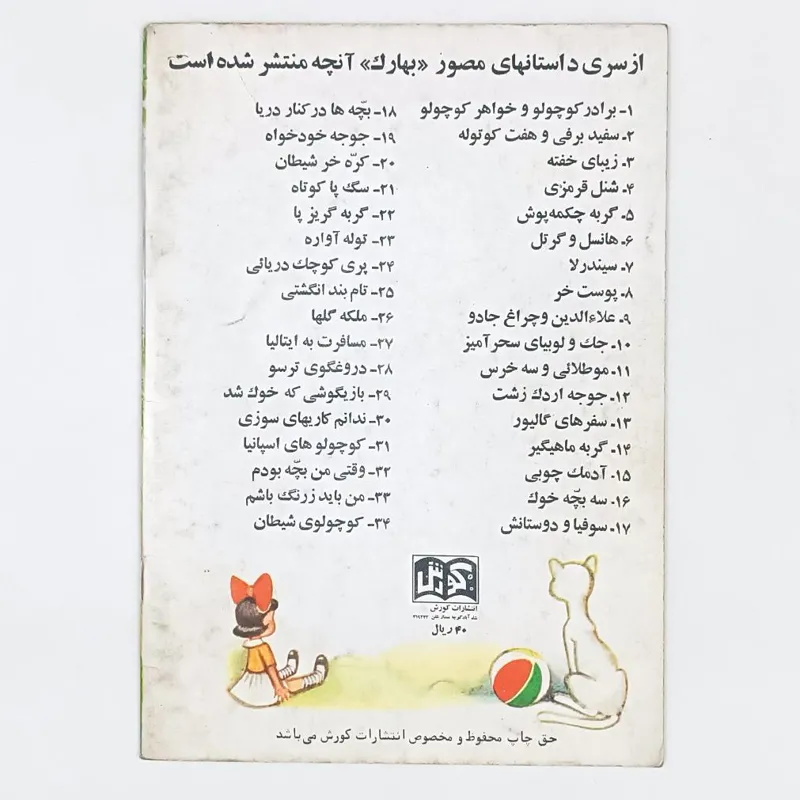 از سری داستانهای مصور «بهارك» آنچه منتشر شده است
۱- برادر کوچولو و خواهر کوچولو
۲- سفید برفی و هفت کوتوله
۳- زیبای خفته
۴- شنل قرمزی
۵- گربه چکمه‌پوش
۶- هانسل و گرتل
۷- سیندرلا
۸- پوست خر
۹- علاءالدین و چراغ جادو
۱۰- جك و لوبیای سحرآمیز
۱۱- موطلائی و سه خرس
۱۲- جوجه اردك زشت
۱۳- سفرهای گالیور
۱۴- گربه ماهیگیر
۱۵- آدمك چوبی
۱۶- سه بچّه خوك
۱۷- سوفیا و دوستانش
۱۸- بچّه ها در کنار دریا
۱۹- جوجه خودخواه
۲۰- کرّه خر شیطان
۲۱- سگ پا کوتاه
۲۲- گربه گریز پا
۲۳- توله آواره
۲۴- پری کوچك دریائی
۲۵- تام بند انگشتی
۲۶- ملکه گلها
۲۷- مسافرت به ایتالیا
۲۸- دروغگوی ترسو
۲۹- بازیگوشی که خوك شد
۳۰- ندانم کاریهای سوزی
۳۱- کوچولو های اسپانیا
۳۲- وقتی من بچّه بودم
۳۳- من باید زرنگ باشم
۳۴- کوچولوی شیطان
کورش
انتشارات کورش
۴۰ ریال
حق چاپ محفوظ و مخصوص انتشارات کورش می‌باشد